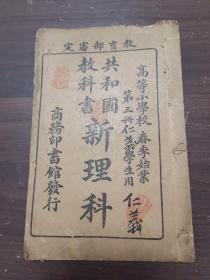 教育部審定
高等小學校 春季始業
第三冊 仁義學生用
仁義
共和國
教科書
新理科
商務印書館發行